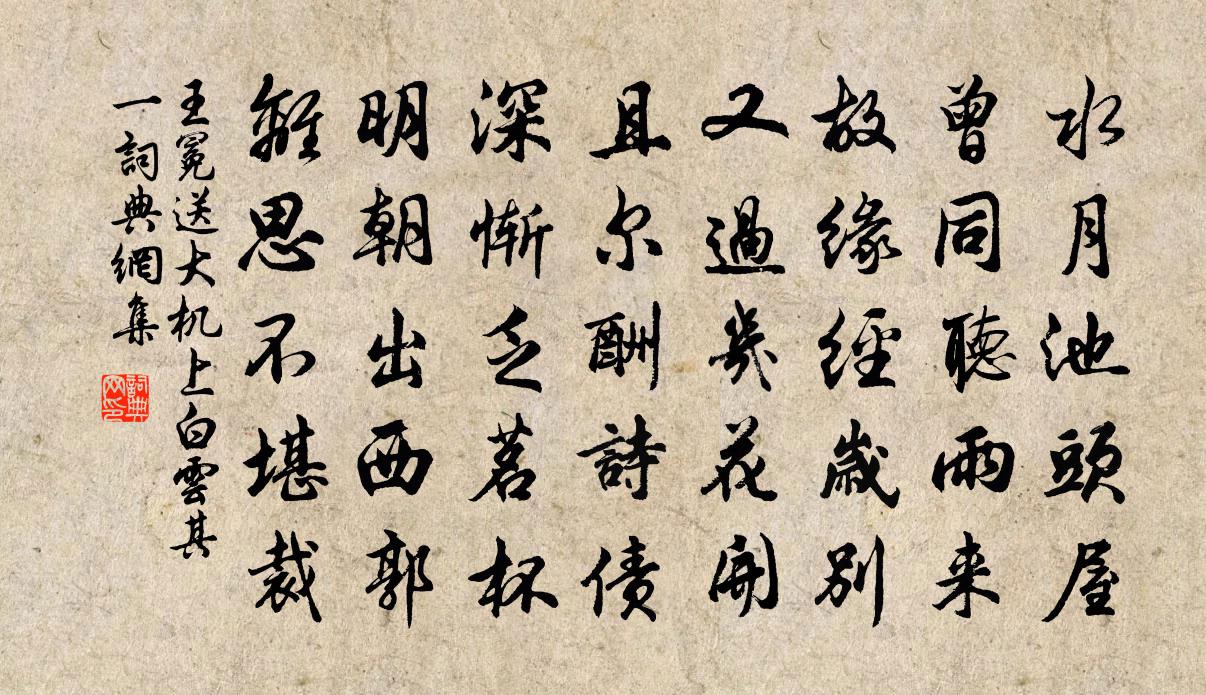 水月池頭屋
曾同聽雨来
故緣經歲別
又過幾花開
且尔酬詩债
深慚乏茗杯
明朝出西郭
離思不堪裁
王冕送大机上白雲其
一詞典網集
詞典网印